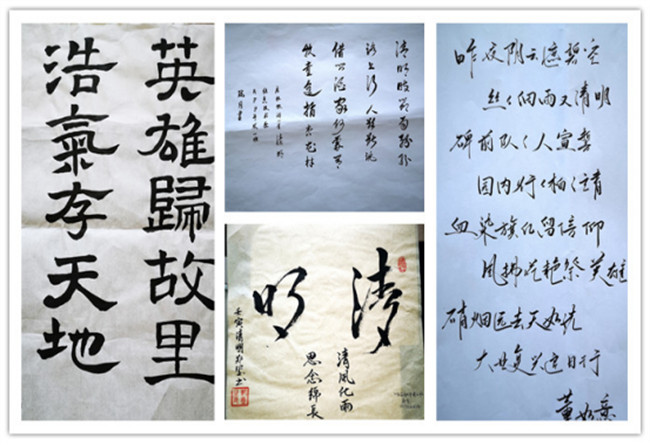 英雄歸故里
浩氣存天地
清明时节雨纷纷
路上行人欲断魂
借问酒家何处有
牧童遥指杏花村
清明
清風化雨
思念綿長
壬寅清明
昨夜阴云遮碧空
丝丝细雨又清明
碑前队队人宣誓
园内行行柏注情
血染旗红留信仰
风拂花艳祭英雄
硝烟远去天如洗
大业复兴
董